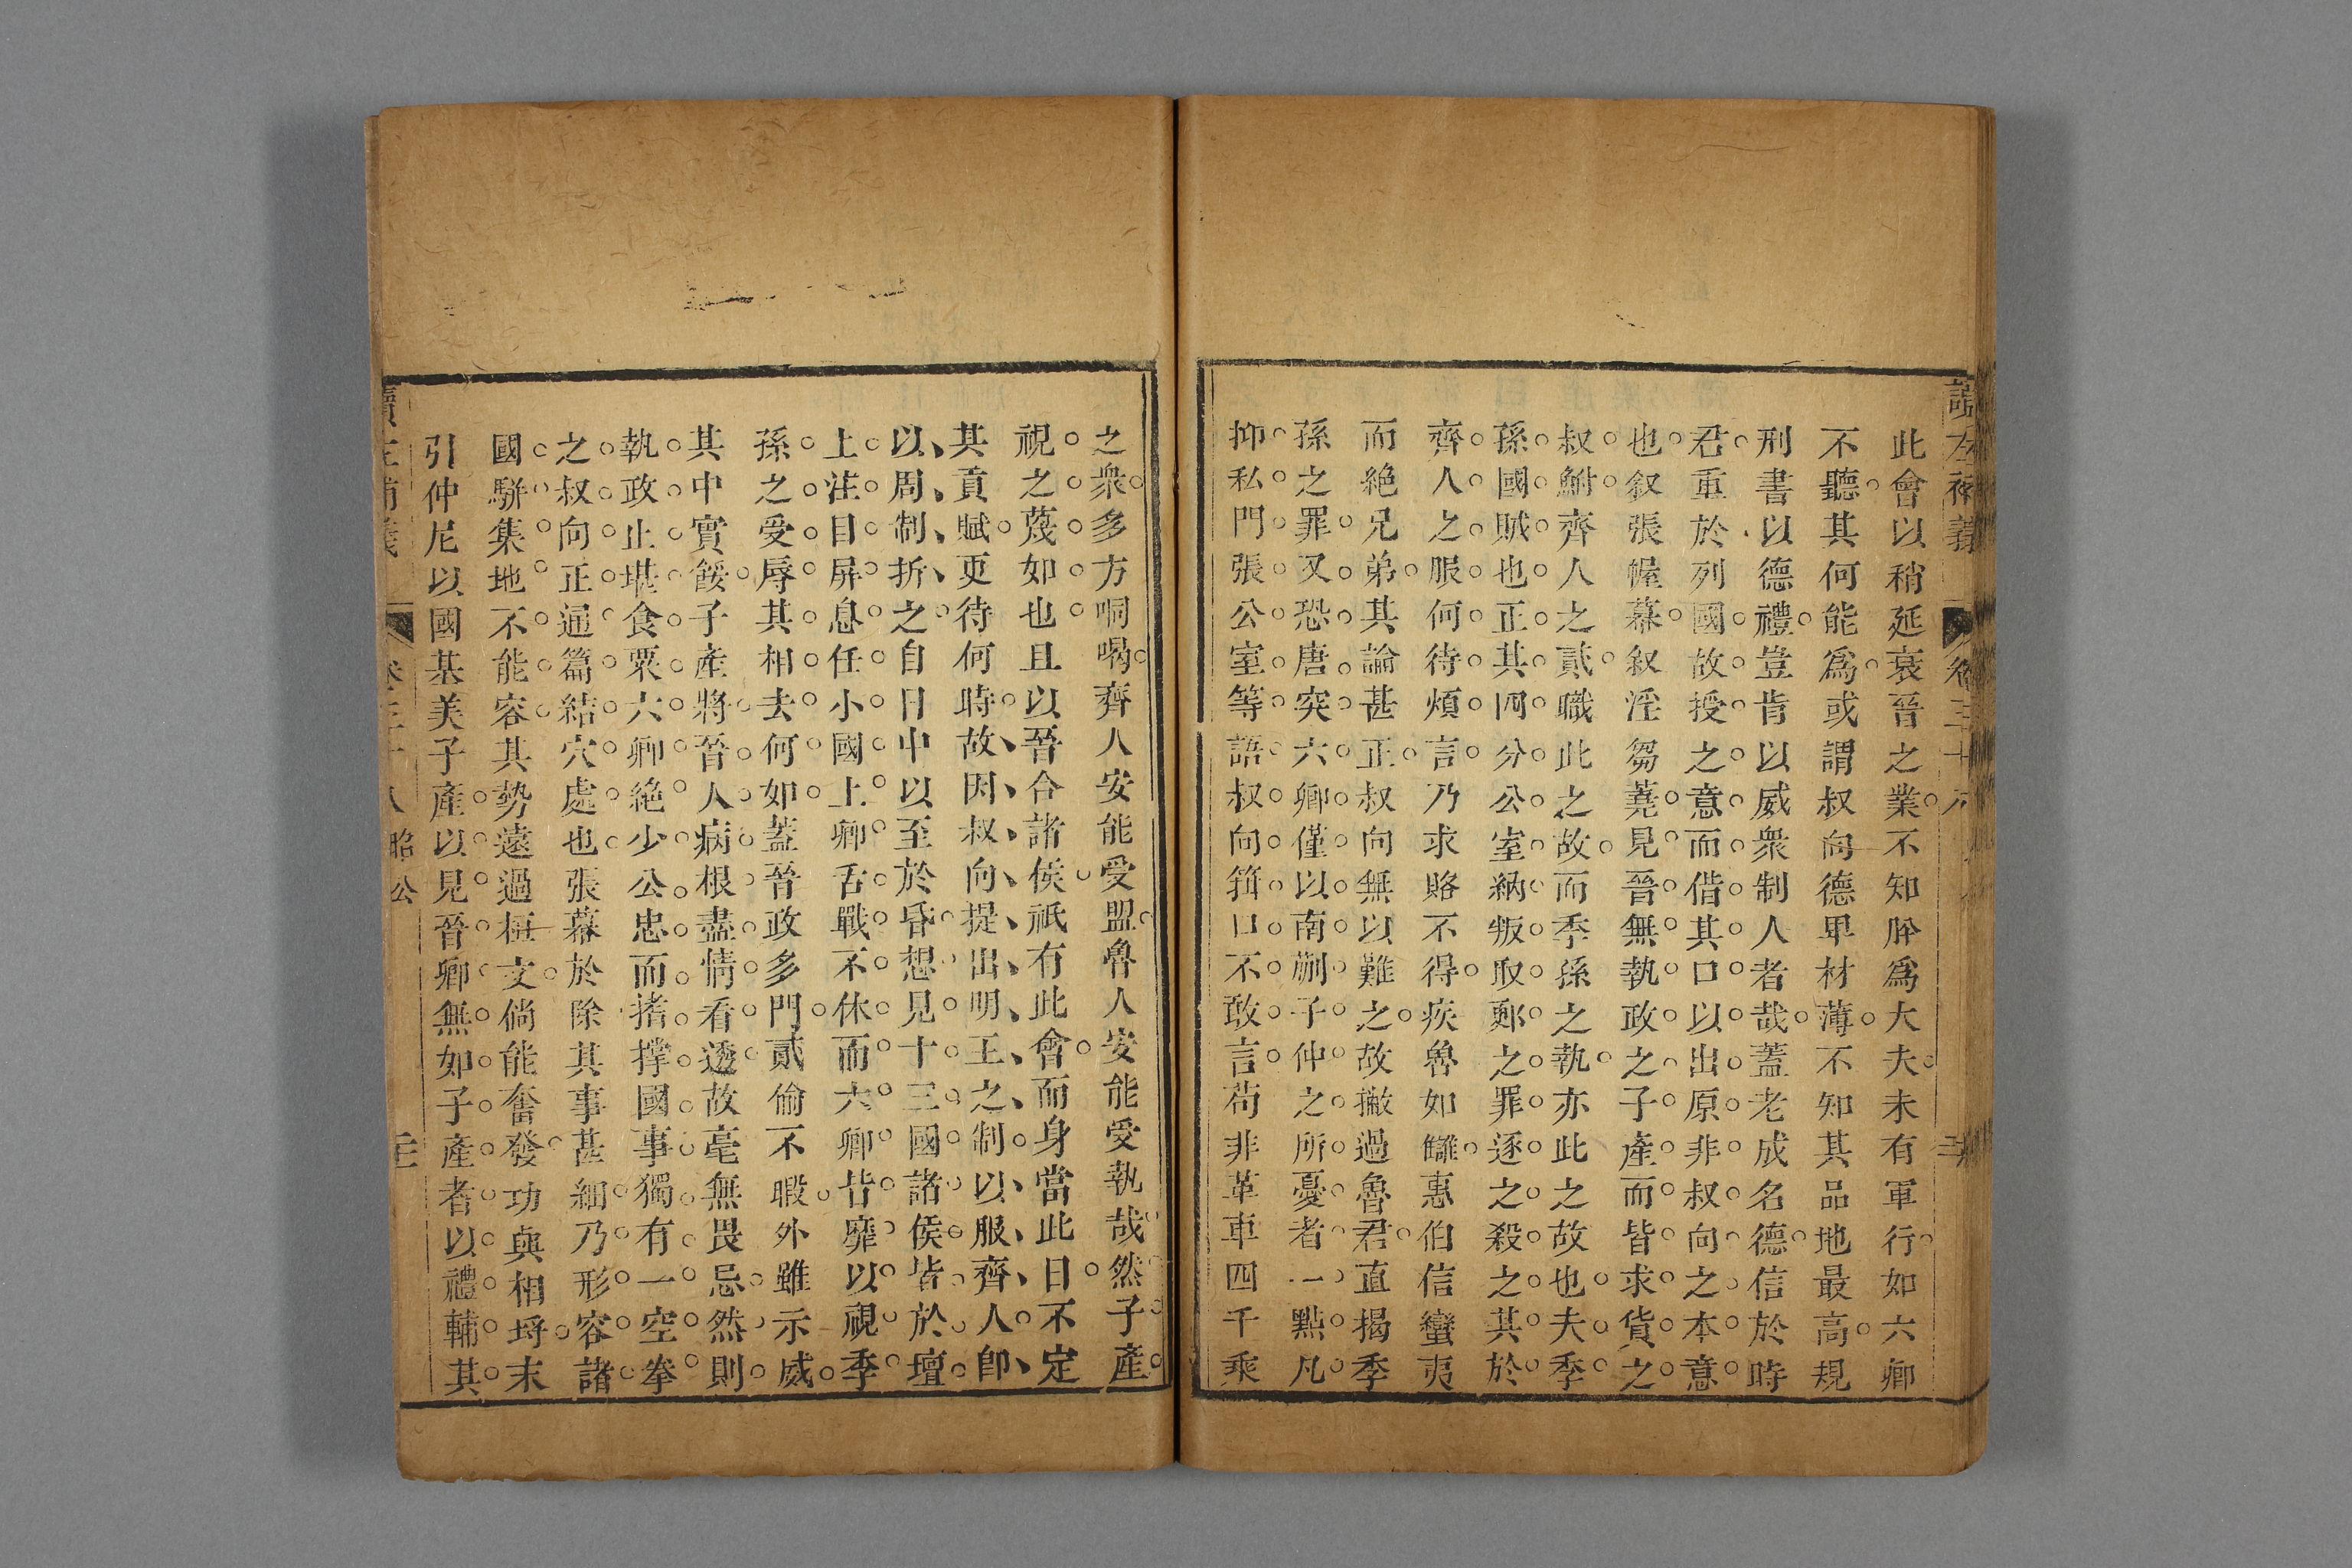 讀左補義 卷三十八
此會以稍延衰晉之業不知肸為大夫未有軍行如六卿
不聽其何能爲或謂叔向德卑材薄不知其品地最高規
刑書以德禮豈肯以威衆制人者哉蓋老成名德信於時
君重於列國故授之意而借其口以出原非叔向之本意
也叙張幄幕叙淫芻蕘見晉無執政之子產而皆求貨之
叔鮒齊人之貳職此之故而季孫之執亦此之故也夫季
孫國賊也正其罔分公室納叛取鄆之罪逐之殺之其於
齊人之服何待煩言乃求賂不得疾魯如讎惠伯信蠻夷
而絕兄弟其論甚正叔向無以難之故撇過魯君直揭季
孫之罪又恐唐突六卿僅以南蒯子仲之所憂者一點凡
抑私門張公室等語叔向箝口不敢言苟非革車四千乘
之衆多方恫喝齊人安能受盟魯人安能受執哉然子產
視之蔑如也且以晉合諸侯祇有此會而身當此日不定
其貢賦更待何時故因叔向提出明王之制以服齊人卽
以周制折之自日中以至於昏想見十三國諸侯皆於壇
上注目屏息任小國上卿舌戰不休而六卿皆靡以視季
孫之受辱其相去何如蓋晉政多門貳偷不暇外雖示威
其中實餒子產將晉人病根盡情看透故毫無畏忌然則
執政止堪食粟六卿絕少公忠而撐撐國事獨有一空拳
之叔向正通篇結穴處也張幕於除其事甚細乃形容諸
國駢集地不能容其勢遠過桓文倘能奮發功與相埒末
引仲尼以國基美子產以見晉卿無如子產者以禮輔其
讀左補義 卷三十八 昭公